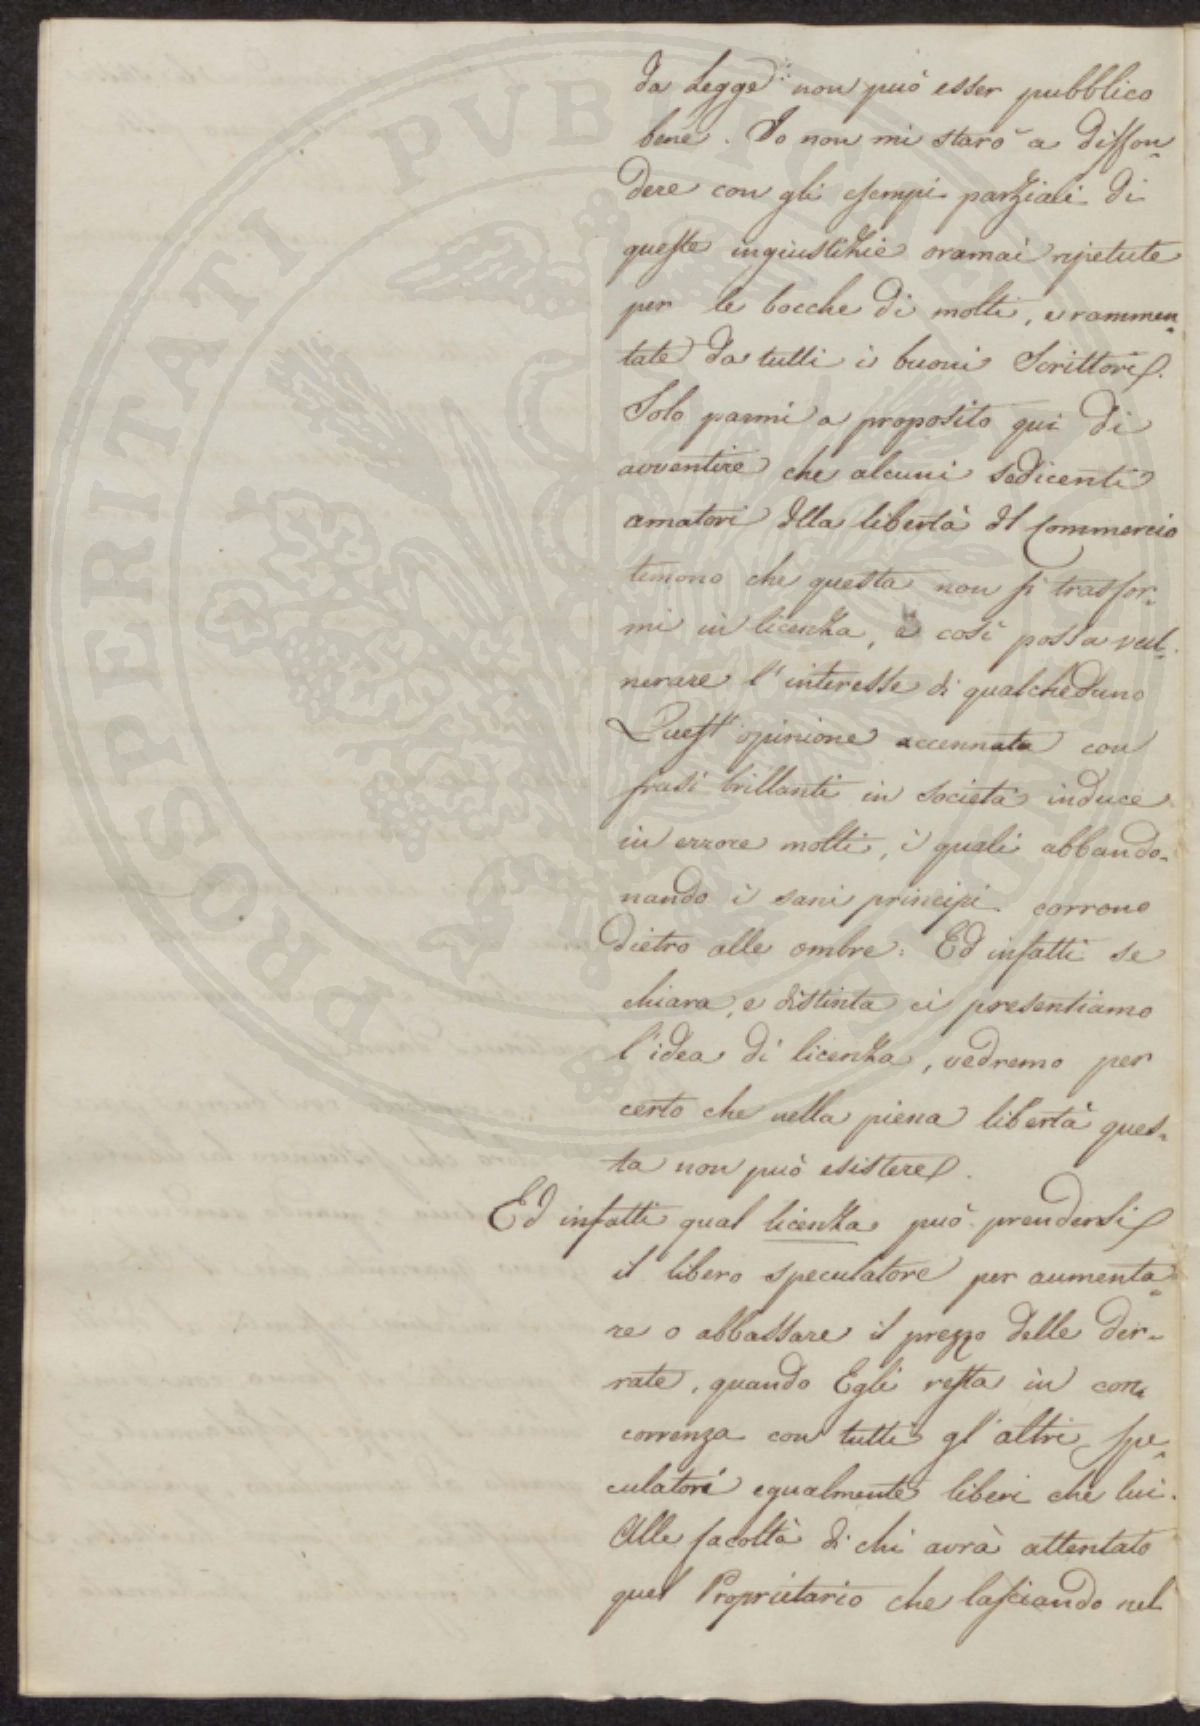 da Legge non può esser pubblico
bene. Io non mi starò a diffon=
dere con gli esempi parziali di
queste ingiustizie oramai ripetute
per le bocche di molti, e rammen=
tate da tutti i buoni Scrittori.
Solo parmi a proposito qui di
avvertire che alcuni sedicenti
amatori dlla libertà dl Commercio
temono che questa non si trasfor=
mi in licenza, e così possa vul=
nerare l'interesse di qualcheduno
Quest'opinione accennata con
frasi brillanti in società induce
in errore molti, i quali abbando=
nando i sani principi corrono
dietro alle ombre: Ed infatti se
chiara, e distinta ci presentiamo
l'idea di licenza, vedremo per
certo che nella piena libertà ques=
ta non può esistere.
Ed infatti qual licenza può prendersi
il libero speculatore per aumenta=
re o abbassare il prezzo delle der=
rate, quando Egli resta in con
correnza con tutti gl'altri spe=
culatori egualmente liberi che lui.
Alle facoltà di chi avrà attentato
quel Proprietario che lasciando nel
PROSPERITATI PUBLICAE